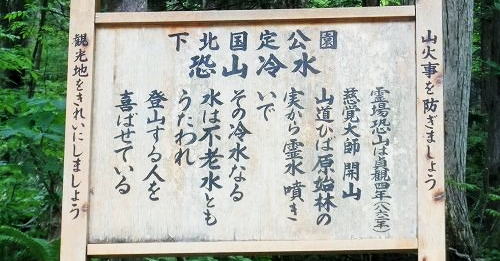 下北国定公園
恐山冷水
霊場恐山は貞観四年(八六二年)
慈覚大師開山
山道ひば原始林の
実から霊水噴き
いで
その冷水なる
水は不老水とも
うたわれ
登山する人を
喜ばせている
山火事を防ぎましょう
観光地をきれいにしましょう